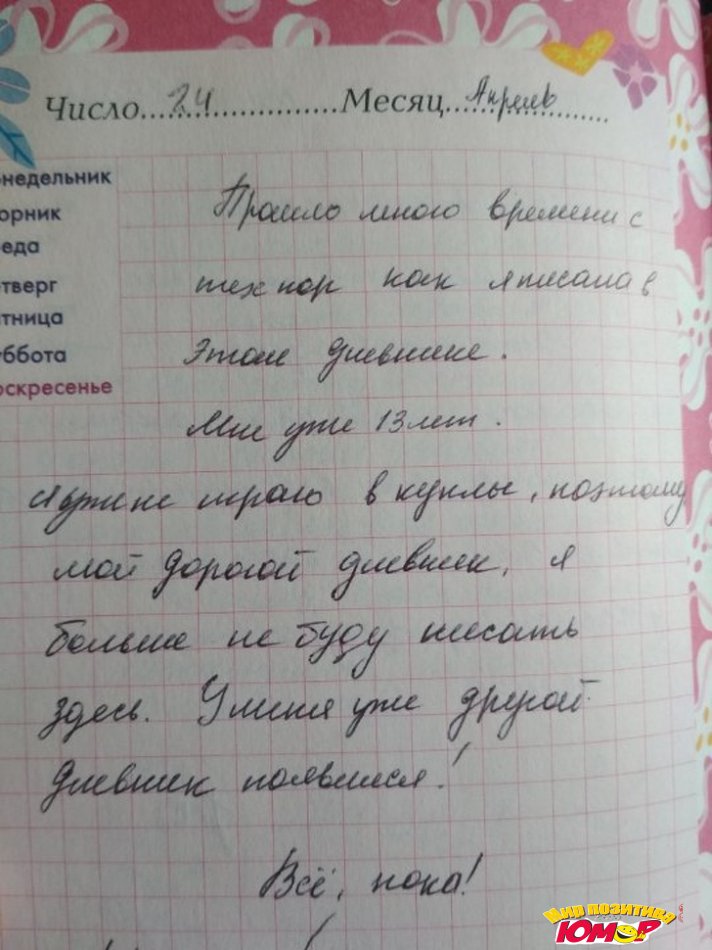 Число...24......................Месяц...Апрель......
недельник
орник
еда
тверг
тница
ббота
скресенье
Прошло много времени с
тех пор как я писала в
этом дневнике.
Мне уже 13 лет.
Я уже не играю в куклы, поэтому
мой дорогой дневник, я
больше не буду писать
здесь. У меня уже другой
дневник появился!
Всё, пока!
Мир позитива
ЮМОР